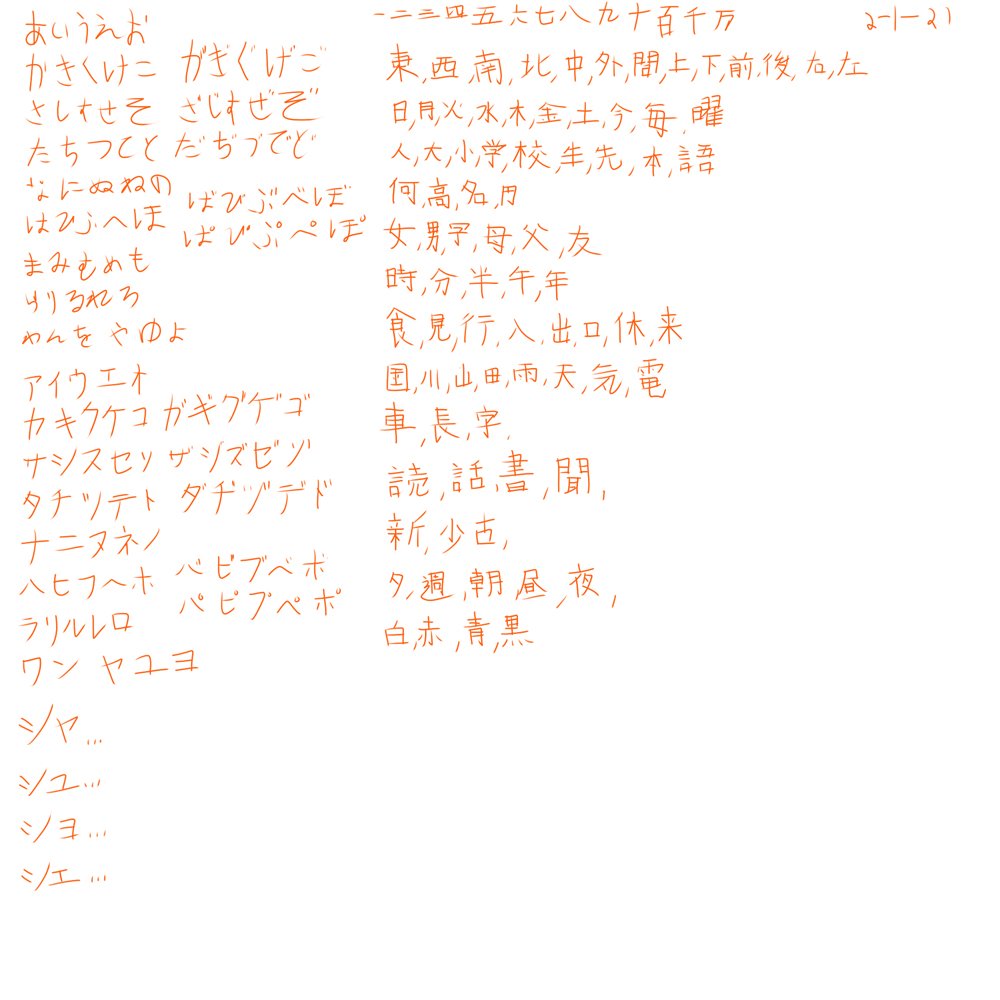 あいうえお
かきくけこ がぎぐげご
さしすせそ ざじずぜぞ
たちつてと だぢづでど
なにぬねの
はひふへほ ばびぶべぼ
ぱぴぷぺぽ
まみむめも
らりるれろ
わんを やゆよ
アイウエオ
カキクケコ ガギグゲゴ
サシスセソ ザジズゼゾ
タチツテト ダヂヅデド
ナニヌネノ
ハヒフヘホ バビブベボ
パピプペポ
ラリルレロ
ワン ヤユヨ
シャ...
シュ...
ショ...
シェ...
一二三四五六七八九十百千万 2-1-21
東,西,南,北,中,外,間,上,下,前,後,右,左
日,月,火,水,木,金,土,今,毎,曜
人,大,小,学,校,生,先,本,語
何,高,名,円
女,男,子,母,父,友
時,分,半,午,年
食,見,行,入,出,口,休,来
国,川,山,田,雨,天,気,電
車,長,字,
読,話,書,聞,
新,少,古,
夕,週,朝,昼,夜,
白,赤,青,黒